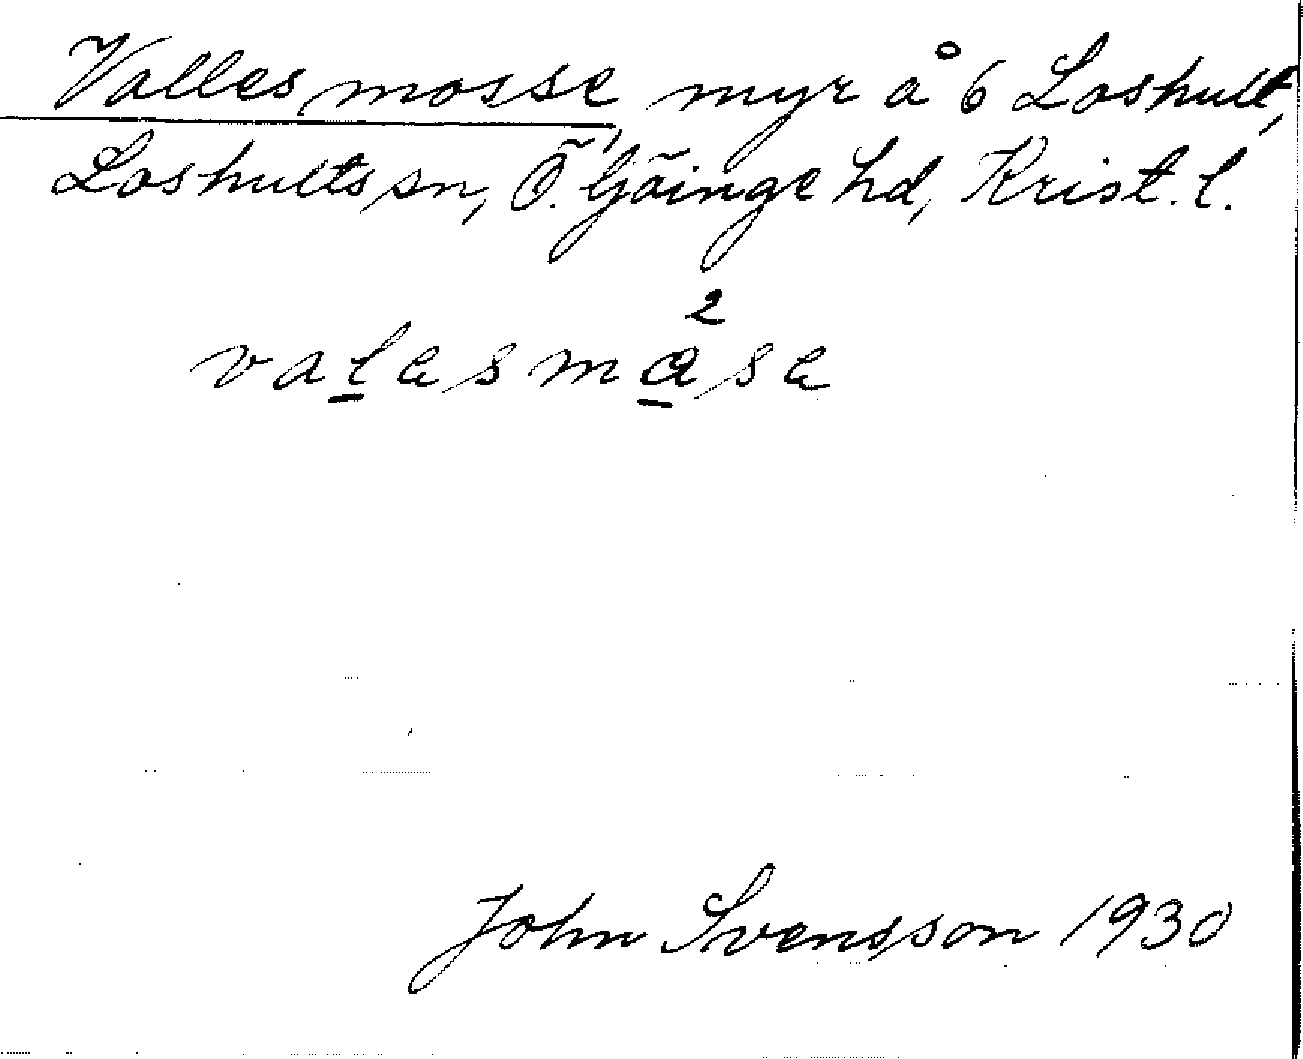 Vallesmosse, myr å 6 Loshult,
Loshults sn, Ö. Göinge hd, Krist. l.
2
valesmåse
John Svensson 1930